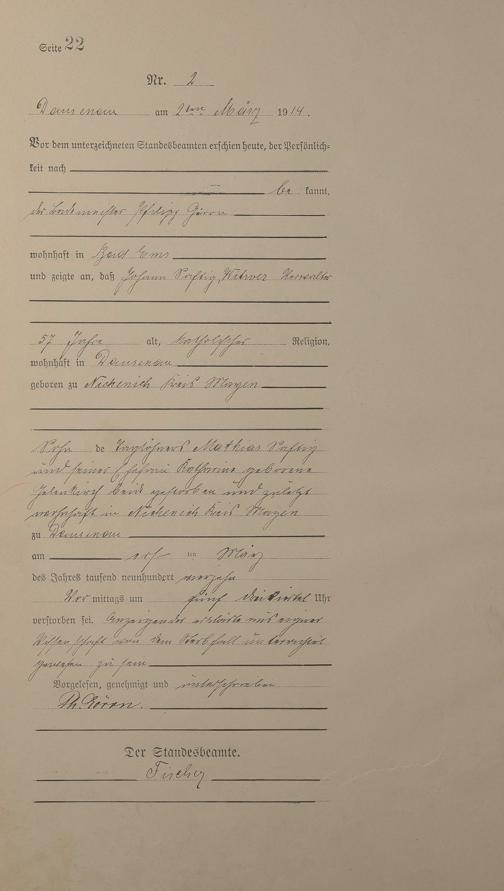 Seite 22
Nr. 2
Dausenau am 2ten März 1914.
Vor dem unterzeichneten Standesbeamten erschien heute, der Persönlich-
keit nach
be kannt,
der Bademeister Philipp
wohnhaft in Bad Ems
und zeigte an, daß Johann Saftig, Witwer
57 Jahre alt, katholischer Religion,
wohnhaft in Dausenau
geboren zu Nickenich Kreis Mayen
Sohn de Taglöhners Mathias Saftig
und seiner Ehefrau Katharine geborene
beide gestorben und zuletzt
wohnhaft in Nickenich Kreis Mayen
zu Dausenau
am März
des Jahres tausend neunhundert vierzehn
Vor mittags um fünf dreiviertel Uhr
verstorben sei. Anzeigender erklärte aus eigner
Wissenschaft von dem Sterbfall unterrichtet
gewesen zu sein
Vorgelesen, genehmigt und unterschrieben
Ph.
Der Standesbeamte.
Fischer